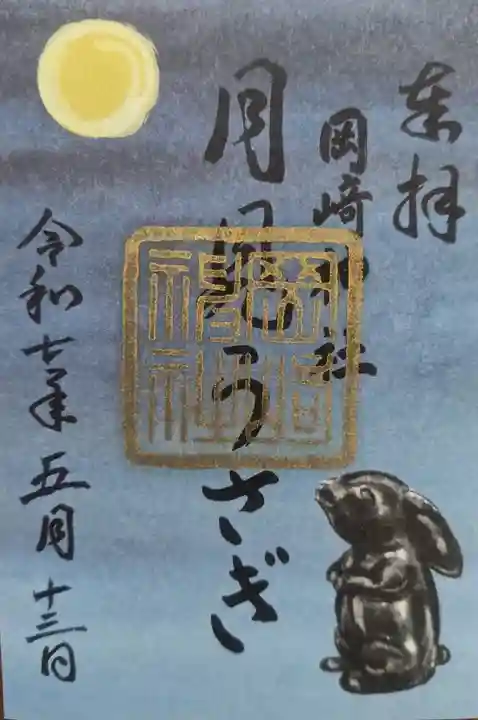 奉拝
岡崎神社
月見うさぎ
令和七年五月十三日
岡崎神社